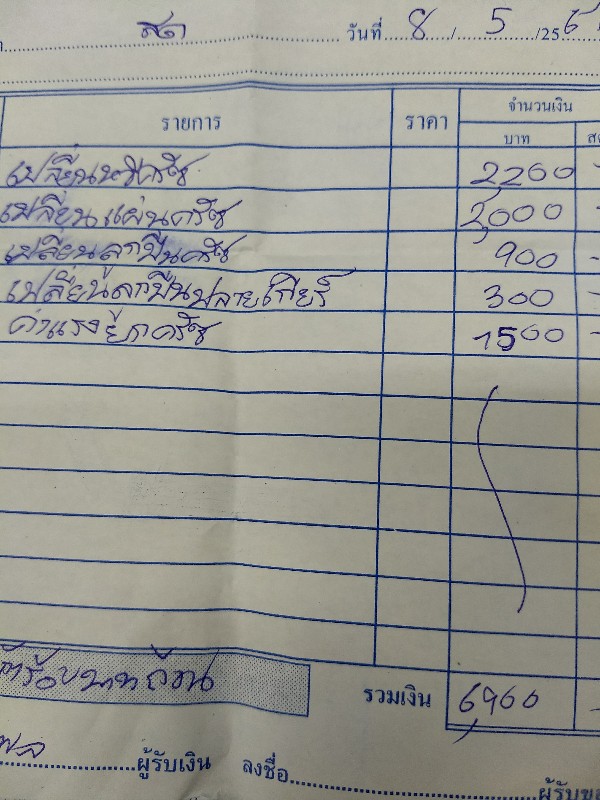 สด วันที่ 8 / 5 /256
รายการ ราคา จำนวนเงิน
บาท
เปลี่ยนหวีครัช 2200 -
เปลี่ยนแผ่นครัช 2,000 -
เปลี่ยนลูกปืนครัช 900 -
เปลี่ยนลูกปืนปลายเกียร์ 300 -
ค่าแรงยกครัช 1500 -
รวมเงิน 6,900 -
ผู้รับเงิน ลงชื่อ